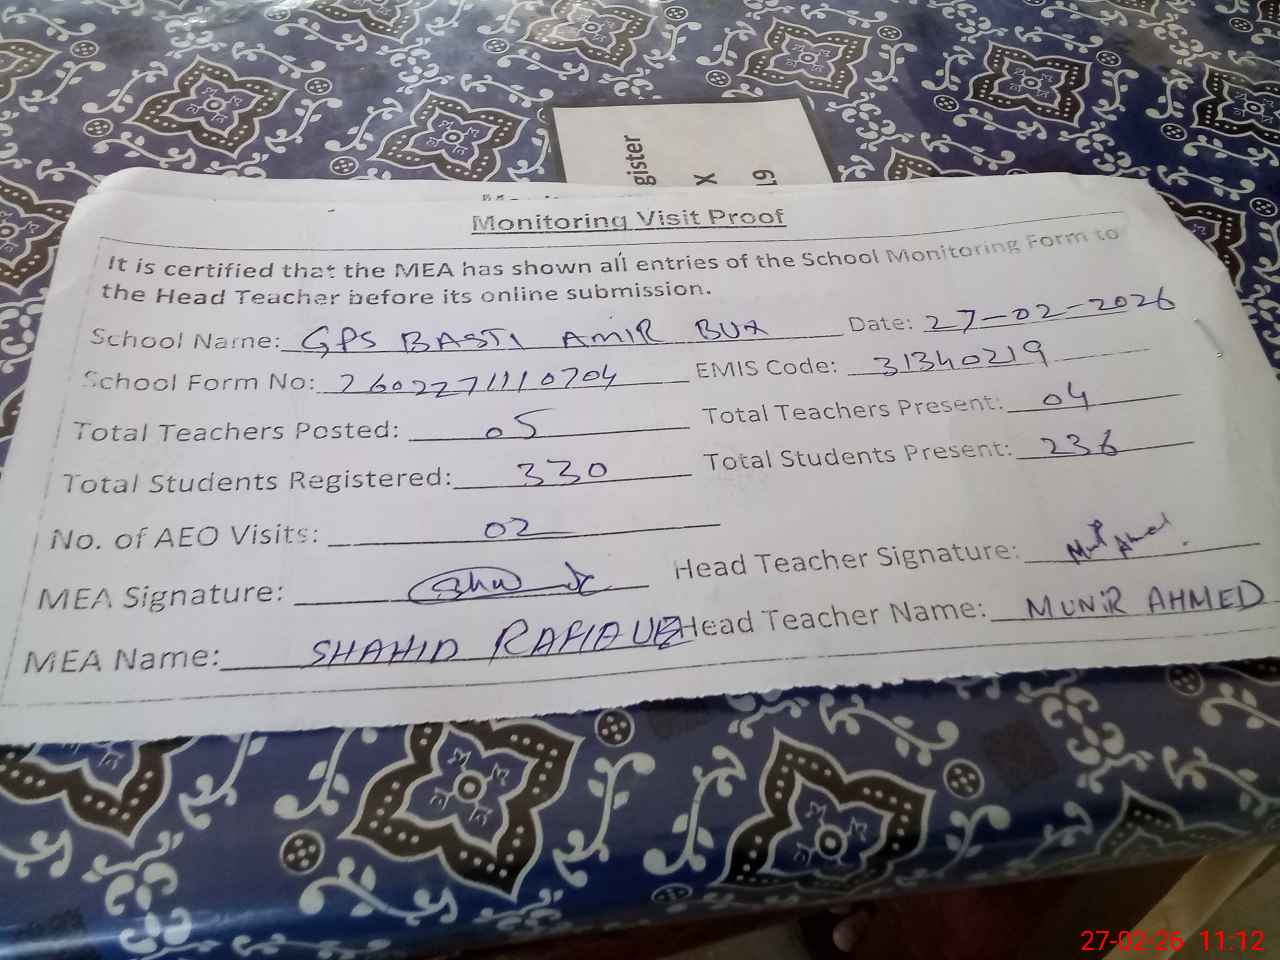 gister
X
19
Monitoring Visit Proof
It is certified that the MEA has shown all entries of the School Monitoring Form to
the Head Teacher before its online submission.
School Name: GPS BASTI AMIR BUX Date: 27-02-2026
School Form No: 2602271110704 EMIS Code: 31340219
Total Teachers Posted: 05 Total Teachers Present: 04
Total Students Registered: 330 Total Students Present: 236
No. of AEO Visits: 02
MEA Signature: Head Teacher Signature:
MEA Name: SHAHID RAFIQUE Head Teacher Name: MUNIR AHMED
27-02-26 11:12